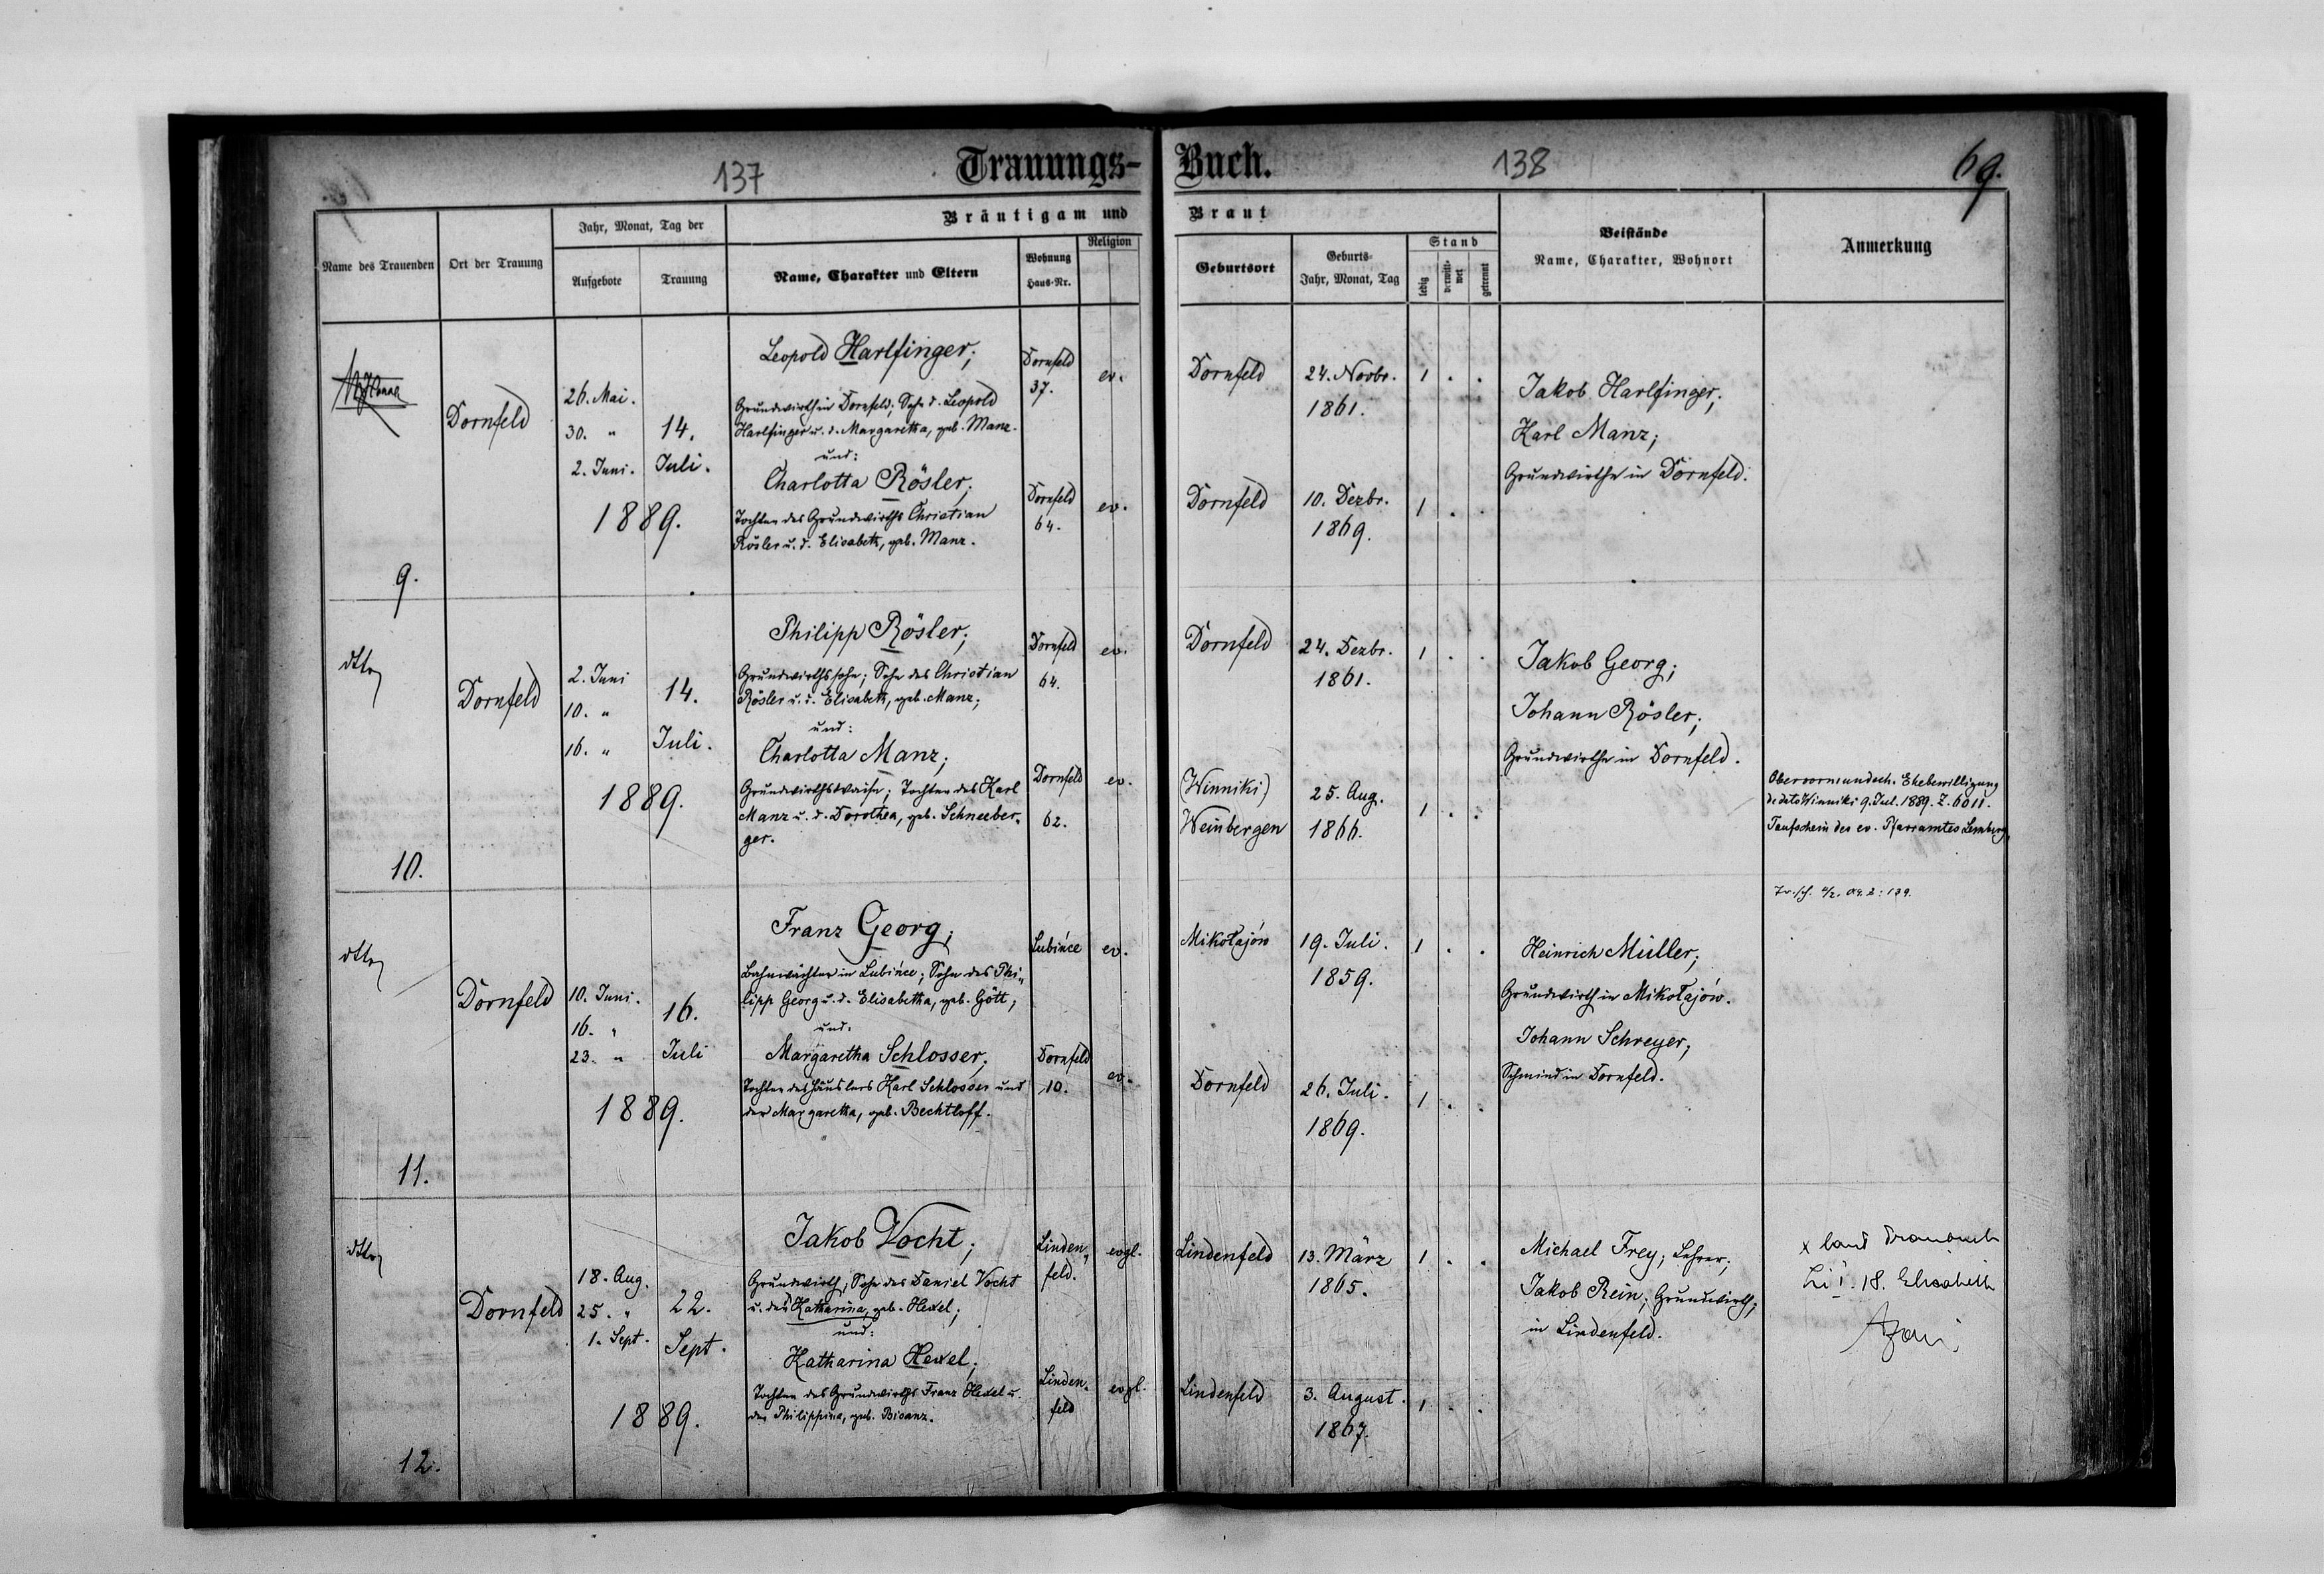 137
Trauungs-
Buch.
138
69.
Jahr, Monat, Tag der
Bräutigam und
Braut
Name des Trauenden
Ort der Trauung
Aufgebote
Trauung
Name, Charakter und Eltern
Wohnung
Haus-Nr.
Religion
Geburtsort
Geburts-
Jahr, Monat, Tag
Stand
ledig
verwitt-
wet
getrennt
Beistände
Name, Charakter, Wohnort
Anmerkung
9.
Dornfeld
26. Mai.
30. "
2. Juni.
14.
Juli.
1889.
Leopold Harlfinger;
Grundwirth in Dornfeld; Sohn d. Leopold
Harlfinger u. d. Margaretha, geb. Manz.
und:
Charlotta Rösler;
Tochter des Grundwirths Christian
Rösler u. d. Elisabeth, geb. Manz.
Dornfeld
37.
ev.
Dornfeld
64.
ev.
Dornfeld
24. Novbr.
1861.
1 . .
Dornfeld
10. Dezbr.
1869.
1 . .
Jakob Harlfinger;
Karl Manz;
Grundwirthe in Dornfeld.
dtto
10.
Dornfeld
2. Juni
10. "
16. "
14.
Juli.
1889.
Philipp Rösler;
Grundwirthssohn; Sohn des Christian
Rösler u. d. Elisabeth, geb. Manz;
und:
Charlotta Manz;
Grundwirthswaise; Tochter des Karl
Manz u. d. Dorothea, geb. Schneeber-
ger.
Dornfeld
64.
ev.
Dornfeld
62.
ev.
Dornfeld
24. Dezbr.
1861.
1 . .
(Winniki)
Weinbergen
25. Aug.
1866.
1 . .
Jakob Georg;
Johann Rösler;
Grundwirthe in Dornfeld.
Obervormundsch. Ehebewilligung
de dato Winniki 9. Jul. 1889. Z. 6011.
Taufschein des ev. Pfarramtes Lemberg,
dtto
11.
Dornfeld
10. Juni.
16. "
23. "
16.
Juli
1889.
Franz Georg;
Bahnwächter in Lubińce; Sohn des Phi-
lipp Georg u. d. Elisabetha, geb. Gött;
und:
Margaretha Schlosser;
Tochter des Häuslers Karl Schlosser und
der Margaretha, geb. Bechtloff.
Lubińce
ev.
Dornfeld
10.
ev.
Mikołajów
19. Juli.
1859.
1 . .
Dornfeld
26. Juli.
1869.
1 . .
Heinrich Müller;
Grundwirth in Mikołajów.
Johann Schreyer;
Schmied in Dornfeld.
dtto
12.
Dornfeld
18. Aug.
25. "
1. Sept.
22.
Sept.
1889.
Jakob Vocht;
Grundwirth; Sohn des Daniel Vocht
u. der Katharina, geb. Hexel;
und:
Katharina Hexel;
Tochter des Grundwirths Franz Hexel u.
der Philippina, geb. Bisanz.
Linden-
feld.
evgl.
Linden-
feld
evgl.
Lindenfeld
13. März
1865.
1 . .
Lindenfeld
3. August.
1867.
1 . .
Michael Frey; Lehrer;
Jakob Rein; Grundwirth;
in Lindenfeld.
18. Elisabeth